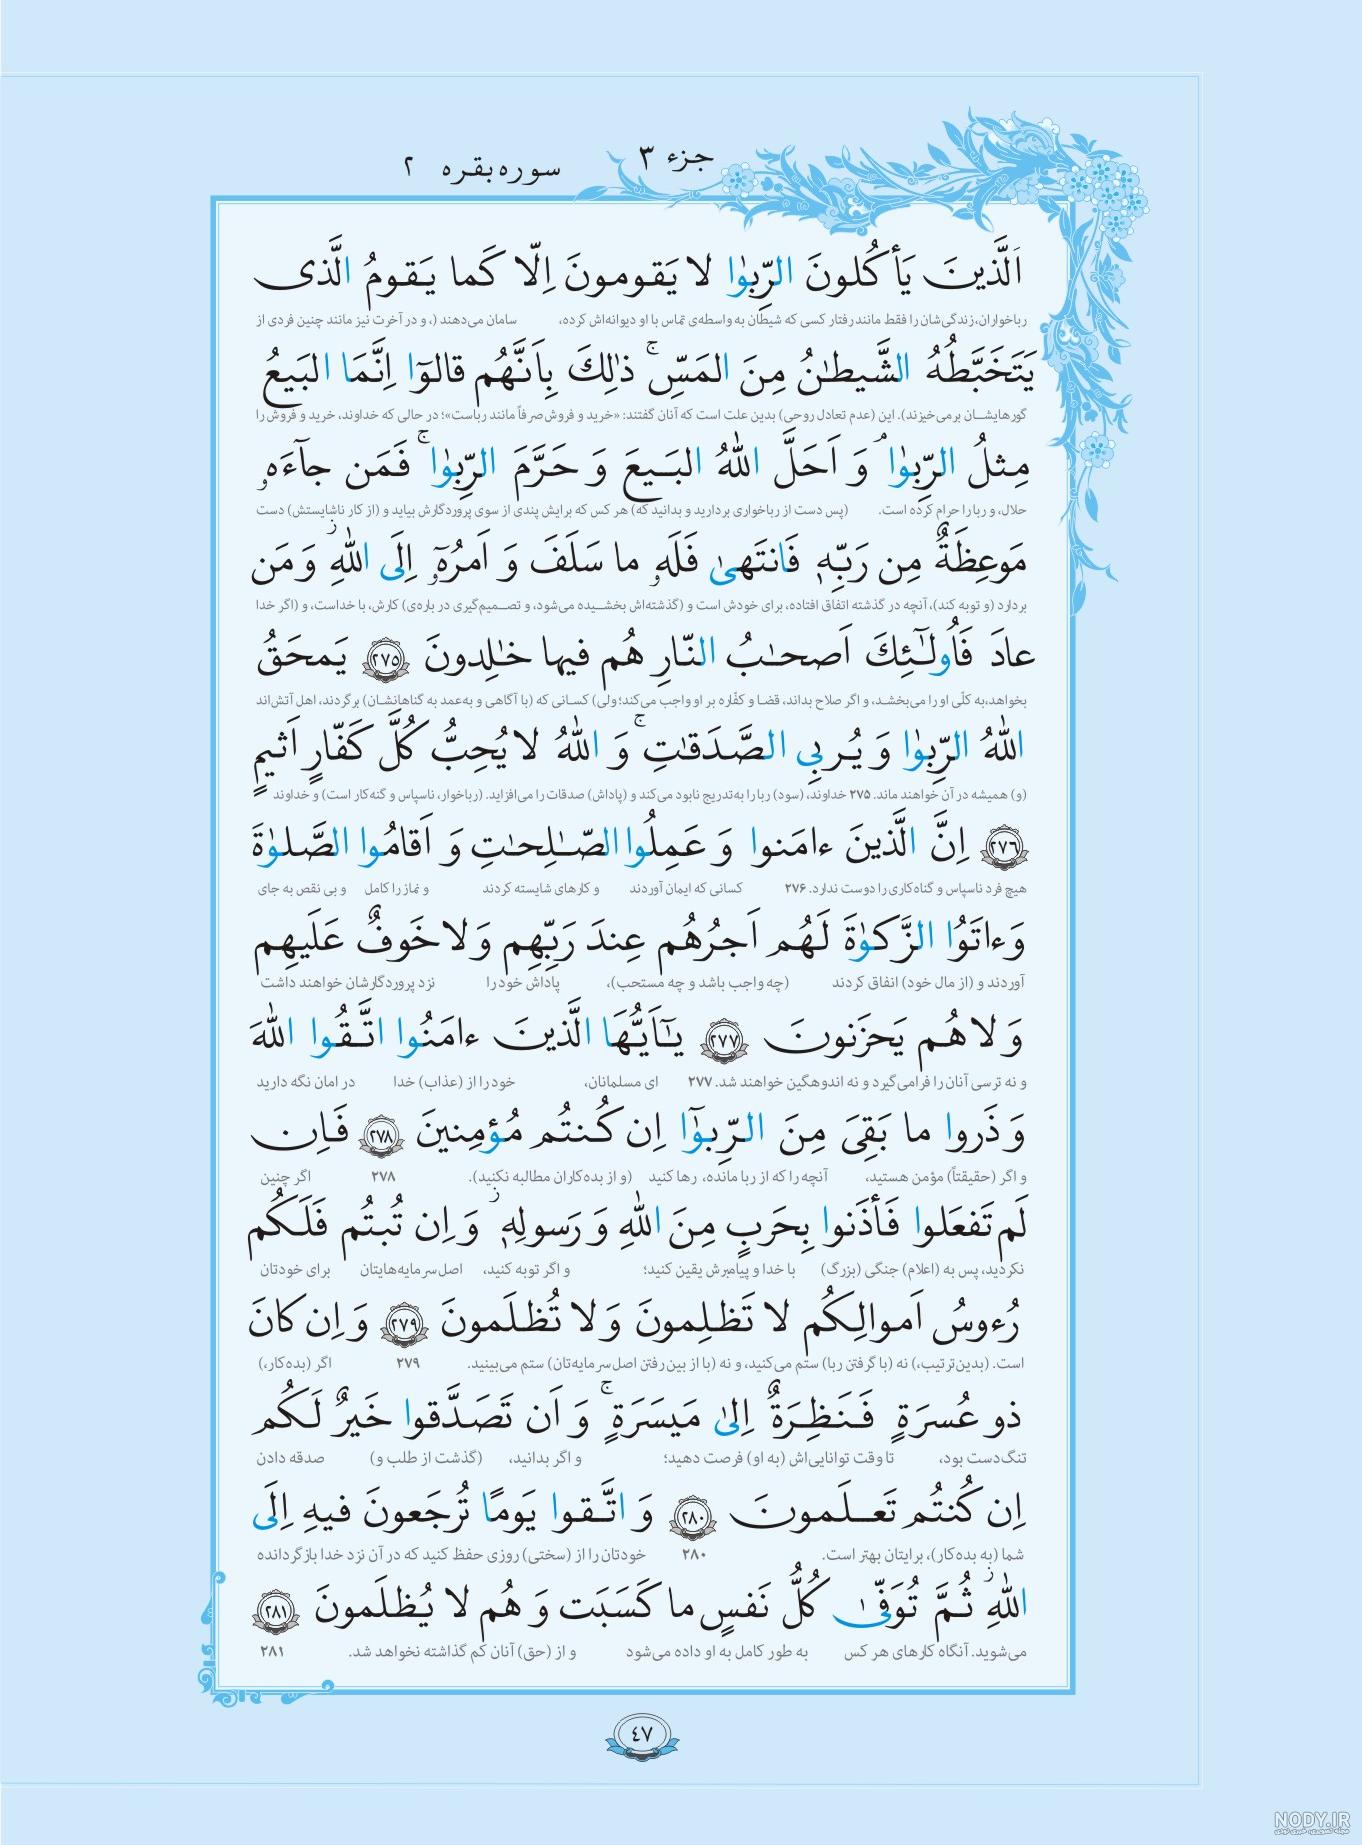 جزء ۳
سوره بقره ۲
اَلَّذینَ یَأکُلونَ الرِّبوٰا لا یَقومونَ اِلّا کَما یَقومُ الَّذی
رباخواران، زندگی‌شان را فقط مانند رفتار کسی که شیطان به واسطه‌ی تماس با او دیوانه‌اش کرده، سامان می‌دهند (، و در آخرت نیز مانند چنین فردی از
یَتَخَبَّطُهُ الشَّیطٰنُ مِنَ المَسِّ ۚ ذٰلِکَ بِاَنَّهُم قالوٓا اِنَّمَا البَیعُ
گورهایشان برمی‌خیزند). این (عدم تعادل روحی) بدین علت است که آنان گفتند: «خرید و فروش صرفاً مانند رباست»؛ در حالی که خداوند، خرید و فروش را
مِثلُ الرِّبوٰا ۘ وَ اَحَلَّ اللّٰهُ البَیعَ وَ حَرَّمَ الرِّبوٰا ۚ فَمَن جآءَهٗ
حلال، و ربا را حرام کرده است. (پس دست از رباخواری بردارید و بدانید که) هر کس که برایش پندی از سوی پروردگارش بیاید و (از کار ناشایستش) دست
مَوعِظَةٌ مِن رَبِّهٖ فَانتَهیٰ فَلَهٗ ما سَلَفَ وَ اَمرُهٗٓ اِلَی اللّٰهِ ۖ وَ مَن
بردارد (و توبه کند)، آنچه در گذشته اتفاق افتاده، برای خودش است و (گذشته‌اش بخشیده می‌شود، و تصمیم‌گیری در باره‌ی) کارش، با خداست، و (اگر خدا
عادَ فَاُولٰٓئِکَ اَصحٰبُ النّارِ هُم فیها خٰلِدونَ ﴿۲۷۵﴾ یَمحَقُ
بخواهد، به کلّی او را می‌بخشد، و اگر صلاح بداند، قضا و کفّاره بر او واجب می‌کند؛ ولی) کسانی که (با آگاهی و به‌عمد به گناهانشان) برگردند، اهل آتش‌اند
اللّٰهُ الرِّبوٰا وَ یُربِی الصَّدَقٰتِ ۚ وَ اللّٰهُ لا یُحِبُّ کُلَّ کَفّارٍ اَثیمٍ
(و) همیشه در آن خواهند ماند. ۲۷۵ خداوند، (سود) ربا را به‌تدریج نابود می‌کند و (پاداش) صدقات را می‌افزاید. (رباخوار، ناسپاس و گنه‌کار است) و خداوند
﴿۲۷۶﴾ اِنَّ الَّذینَ ءامَنوا وَ عَمِلُوا الصّٰلِحٰتِ وَ اَقامُوا الصَّلوٰةَ
هیچ فرد ناسپاس و گناه‌کاری را دوست ندارد. ۲۷۶ کسانی که ایمان آوردند و کارهای شایسته کردند و نماز را کامل و بی نقص به جای
وَ ءاتَوُا الزَّکوٰةَ لَهُم اَجرُهُم عِندَ رَبِّهِم وَ لا خَوفٌ عَلَیهِم
آوردند و (از مال خود) انفاق کردند (چه واجب باشد و چه مستحب)، پاداش خود را نزد پروردگارشان خواهند داشت
وَ لا هُم یَحزَنونَ ﴿۲۷۷﴾ یٰٓاَیُّهَا الَّذینَ ءامَنُوا اتَّقُوا اللّٰهَ
و نه ترسی آنان را فرامی‌گیرد و نه اندوهگین خواهند شد. ۲۷۷ ای مسلمانان، خود را از (عذاب) خدا در امان نگه دارید
وَ ذَروا ما بَقِیَ مِنَ الرِّبوٰٓا اِن کُنتُم مُؤمِنینَ ﴿۲۷۸﴾ فَاِن
و اگر (حقیقتاً) مؤمن هستید، آنچه را که از ربا مانده، رها کنید (و از بده‌کاران مطالبه نکنید). ۲۷۸ اگر چنین
لَم تَفعَلوا فَأذَنوا بِحَربٍ مِنَ اللّٰهِ وَ رَسولِهٖ ۖ وَ اِن تُبتُم فَلَکُم
نکردید، پس به (اعلام) جنگی (بزرگ) با خدا و پیامبرش یقین کنید؛ و اگر توبه کنید، اصل سرمایه‌هایتان برای خودتان
رُءوسُ اَموالِکُم لا تَظلِمونَ وَ لا تُظلَمونَ ﴿۲۷۹﴾ وَ اِن کانَ
است. (بدین‌ترتیب،) نه (با گرفتن ربا) ستم می‌کنید، و نه (با از بین رفتن اصل سرمایه‌تان) ستم می‌بینید. ۲۷۹ اگر (بده‌کار،)
ذو عُسرَةٍ فَنَظِرَةٌ اِلیٰ مَیسَرَةٍ ۚ وَ اَن تَصَدَّقوا خَیرٌ لَکُم
تنگ‌دست بود، تا وقت توانایی‌اش (به او) فرصت دهید؛ و اگر بدانید، (گذشت از طلب و) صدقه دادن
اِن کُنتُم تَعلَمونَ ﴿۲۸۰﴾ وَ اتَّقوا یَومًا تُرجَعونَ فیهِ اِلَی
شما (به بده‌کار)، برایتان بهتر است. ۲۸۰ خودتان را از (سختی) روزی حفظ کنید که در آن نزد خدا بازگردانده
اللّٰهِ ۖ ثُمَّ تُوَفّیٰ کُلُّ نَفسٍ ما کَسَبَت وَ هُم لا یُظلَمونَ ﴿۲۸۱﴾
می‌شوید. آنگاه کارهای هر کس به طور کامل به او داده می‌شود و از (حق) آنان کم گذاشته نخواهد شد. ۲۸۱
۴۷
NODY.IR